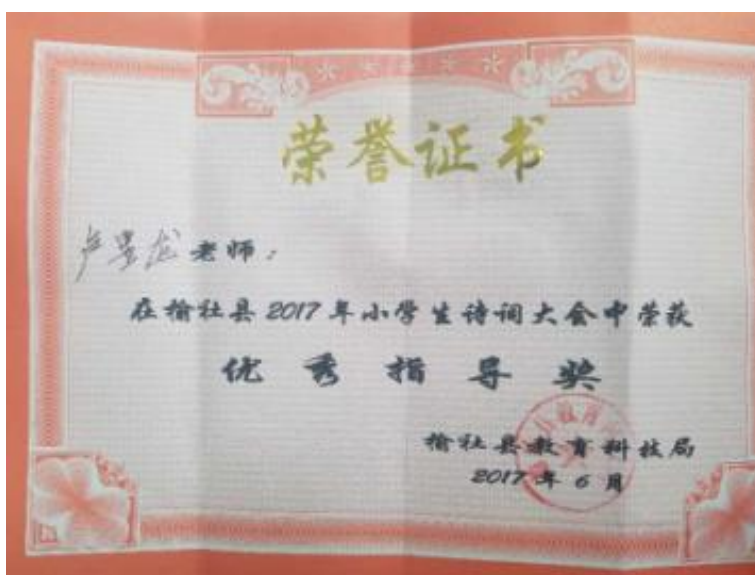 荣誉证书
卢昱龙老师：
在榆社县2017年小学生诗词大会中荣获
优秀指导奖
榆社县教育科技局
2017年6月